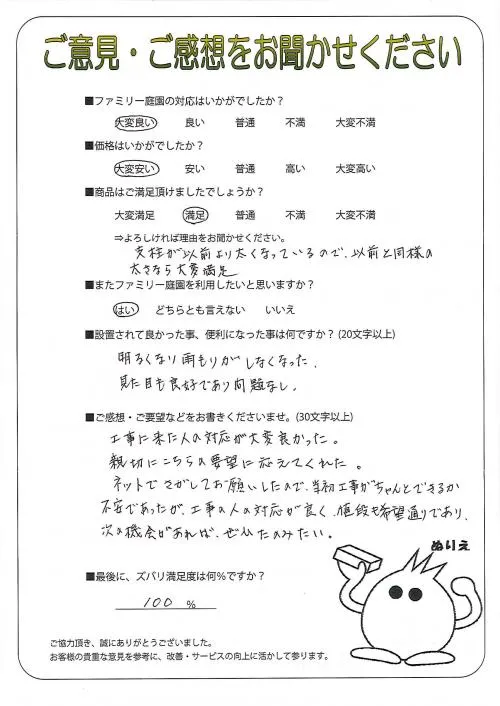 ご意見・ご感想をお聞かせください
■ファミリー庭園の対応はいかがでしたか？
大変良い 良い 普通 不満 大変不満
■価格はいかがでしたか？
大変安い 安い 普通 高い 大変高い
■商品はご満足頂けましたでしょうか？
大変満足 満足 普通 不満 大変不満
⇒よろしければ理由をお聞かせください。
支柱が以前より太くなっているので、以前と同様の
太さなら大変満足
■またファミリー庭園を利用したいと思いますか？
はい どちらとも言えない いいえ
■設置されて良かった事、便利になった事は何ですか？(20文字以上)
明るくなり雨もりがしなくなった、
見た目も良好であり問題なし。
■ご感想・ご要望などをお書きくださいませ。(30文字以上)
工事に来た人の対応が大変良かった。
親切にこちらの要望に応えてくれた。
ネットでさがしてお願いしたので、当初工事がちゃんとできるか
不安であったが、工事の人の対応が良く、値段も希望通りであり、
次の機会があれば、ぜひたのみたい。
ぬりえ
■最後に、ズバリ満足度は何％ですか？
100 %
ご協力頂き、誠にありがとうございました。
お客様の貴重な意見を参考に、改善・サービスの向上に活かして参ります。